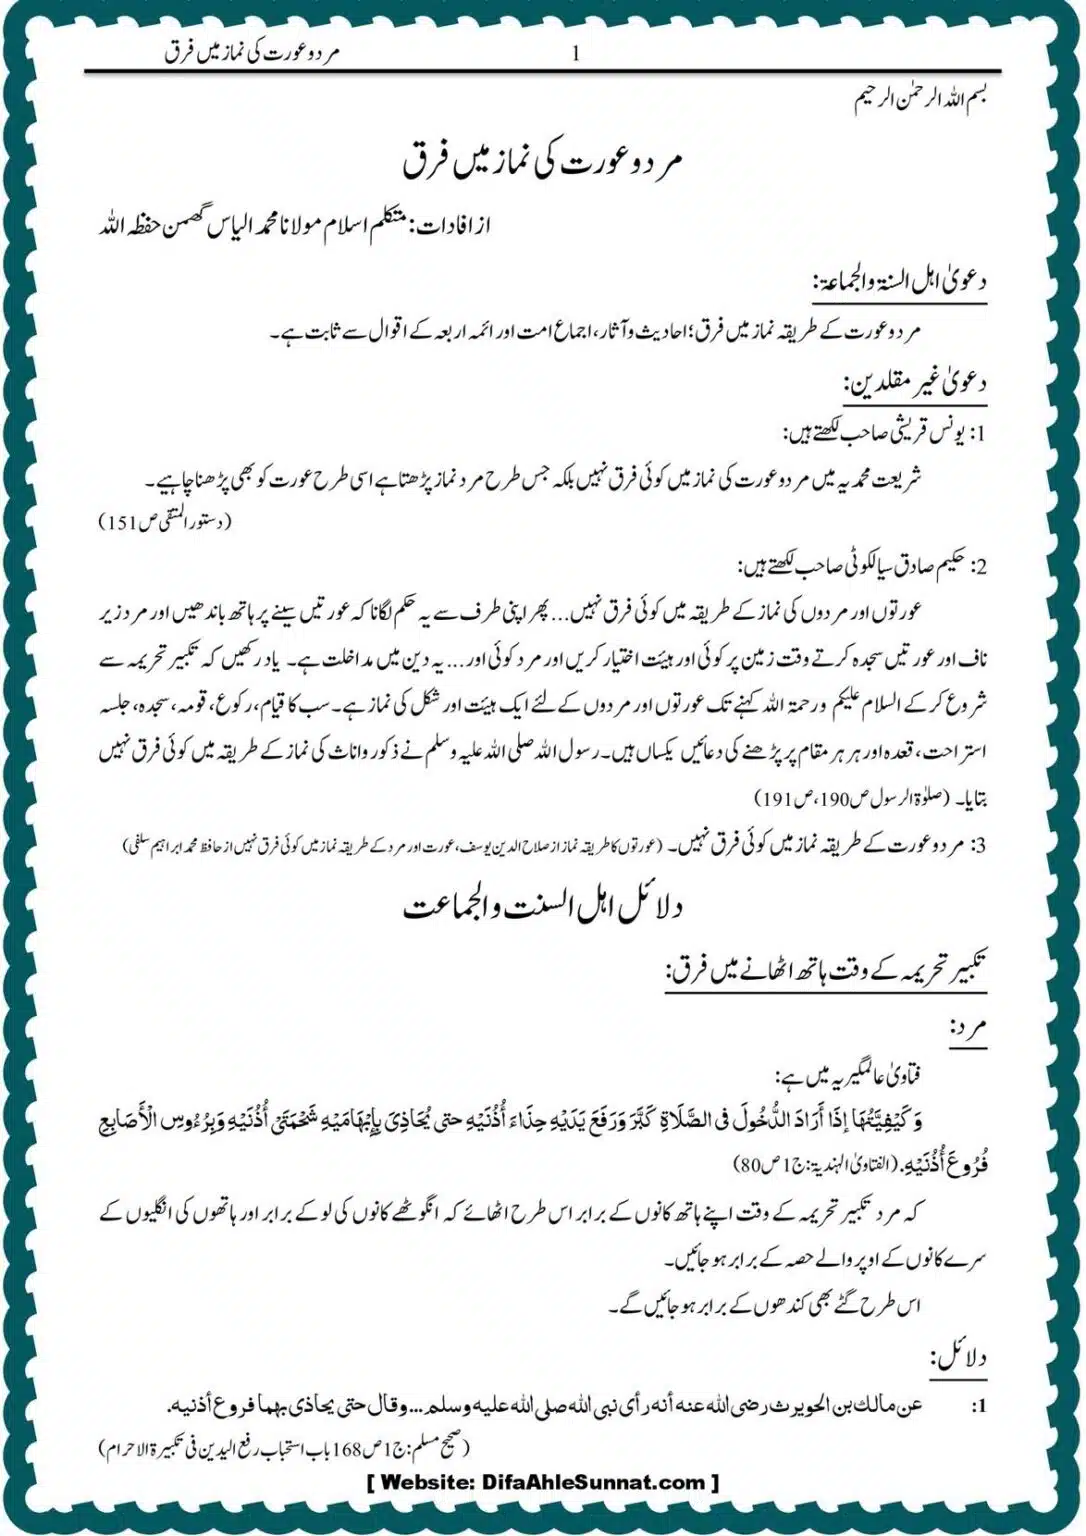 مرد و عورت کی نماز میں فرق
1
بسم اللہ الرحمٰن الرحیم
مرد و عورت کی نماز میں فرق
از افادات: متکلم اسلام مولانا محمد الیاس گھمن حفظہ اللہ
دعویٰ اہل السنۃ والجماعۃ:
مرد و عورت کے طریقہ نماز میں فرق؛ احادیث و آثار، اجماع امت اور ائمہ اربعہ کے اقوال سے ثابت ہے۔
دعویٰ غیر مقلدین:
1: یونس قریشی صاحب لکھتے ہیں:
شریعت محمدیہ میں مرد و عورت کی نماز میں کوئی فرق نہیں بلکہ جس طرح مرد نماز پڑھتا ہے اسی طرح عورت کو بھی پڑھنا چاہیے۔
(دستور المتقی ص151)
2: حکیم صادق سیالکوٹی صاحب لکھتے ہیں:
عورتوں اور مردوں کی نماز کے طریقہ میں کوئی فرق نہیں... پھر اپنی طرف سے یہ حکم لگانا کہ عورتیں سینے پر ہاتھ باندھیں اور مرد زیر
ناف اور عورتیں سجدہ کرتے وقت زمین پر کوئی اور ہیئت اختیار کریں اور مرد کوئی اور... یہ دین میں مداخلت ہے۔ یاد رکھیں کہ تکبیر تحریمہ سے
شروع کر کے السلام علیکم ورحمۃ اللہ کہنے تک عورتوں اور مردوں کے لئے ایک ہیئت اور شکل کی نماز ہے۔ سب کا قیام، رکوع، قومہ، سجدہ، جلسہ
استراحت، قعدہ اور ہر ہر مقام پر پڑھنے کی دعائیں یکساں ہیں۔ رسول اللہ صلی اللہ علیہ وسلم نے ذکور واناث کی نماز کے طریقہ میں کوئی فرق نہیں
بتایا۔ (صلوٰۃ الرسول ص190، ص191)
3: مرد و عورت کے طریقہ نماز میں کوئی فرق نہیں۔ (عورتوں کا طریقہ نماز از صلاح الدین یوسف، عورت اور مرد کے طریقہ نماز میں کوئی فرق نہیں از حافظ محمد ابراہیم سلفی)
دلائل اہل السنت والجماعت
تکبیر تحریمہ کے وقت ہاتھ اٹھانے میں فرق:
مرد:
فتاویٰ عالمگیریہ میں ہے:
وَكَيْفِيَّتُهَا إذَا أَرَادَ الدُّخُولَ فى الصَّلَاةِ كَبَّرَ وَرَفَعَ يَدَيْهِ حِذَاءَ أُذُنَيْهِ حتى يُحَاذِىَ بِإِبْهَامَيْهِ شَحْمَتَىْ أُذُنَيْهِ وَبِرُءُوسِ الْأَصَابِعِ
فُرُوعَ أُذُنَيْهِ. (الفتاویٰ الہندیۃ: ج1 ص80)
کہ مرد تکبیر تحریمہ کے وقت اپنے ہاتھ کانوں کے برابر اس طرح اٹھائے کہ انگوٹھے کانوں کی لو کے برابر اور ہاتھوں کی انگلیوں کے
سرے کانوں کے اوپر والے حصہ کے برابر ہو جائیں۔
اس طرح گٹے بھی کندھوں کے برابر ہو جائیں گے۔
دلائل:
1: عن مالك بن الحويرث رضى الله عنه أنه رأى نبى الله صلى الله عليه وسلم ... وقال حتى يحاذى بهما فروع أذنيه.
(صحیح مسلم: ج1 ص168 باب استحباب رفع الیدین فی تکبیرۃ الاحرام)
[ Website: DifaAhleSunnat.com ]